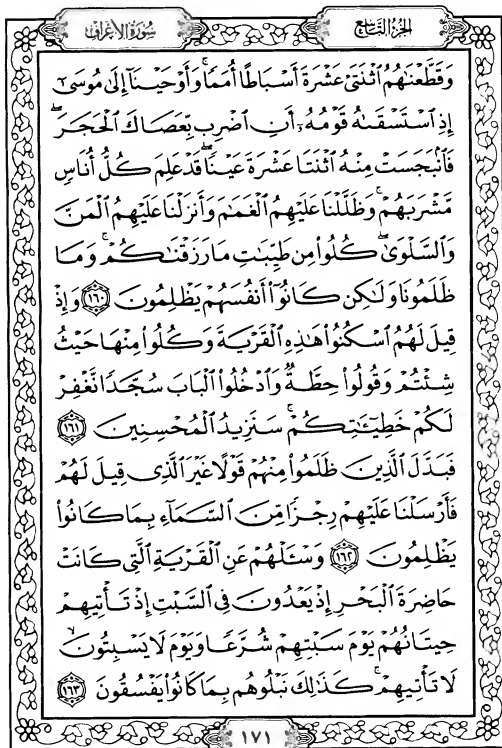 الجزء التاسع
سورة الأعراف
وَقَطَّعْنَٰهُمُ ٱثْنَتَىْ عَشْرَةَ أَسْبَاطًا أُمَمًاۚ وَأَوْحَيْنَآ إِلَىٰ مُوسَىٰٓ
إِذِ ٱسْتَسْقَىٰهُ قَوْمُهُۥٓ أَنِ ٱضْرِب بِّعَصَاكَ ٱلْحَجَرَۖ
فَٱنۢبَجَسَتْ مِنْهُ ٱثْنَتَا عَشْرَةَ عَيْنًاۖ قَدْ عَلِمَ كُلُّ أُنَاسٍ
مَّشْرَبَهُمْۚ وَظَلَّلْنَا عَلَيْهِمُ ٱلْغَمَٰمَ وَأَنزَلْنَا عَلَيْهِمُ ٱلْمَنَّ
وَٱلسَّلْوَىٰۖ كُلُوا۟ مِن طَيِّبَٰتِ مَا رَزَقْنَٰكُمْۚ وَمَا
ظَلَمُونَا وَلَٰكِن كَانُوٓا۟ أَنفُسَهُمْ يَظْلِمُونَ ١٦٠ وَإِذْ
قِيلَ لَهُمُ ٱسْكُنُوا۟ هَٰذِهِ ٱلْقَرْيَةَ وَكُلُوا۟ مِنْهَا حَيْثُ
شِئْتُمْ وَقُولُوا۟ حِطَّةٌ وَٱدْخُلُوا۟ ٱلْبَابَ سُجَّدًا نَّغْفِرْ
لَكُمْ خَطِيٓـَٰٔتِكُمْۚ سَنَزِيدُ ٱلْمُحْسِنِينَ ١٦١
فَبَدَّلَ ٱلَّذِينَ ظَلَمُوا۟ مِنْهُمْ قَوْلًا غَيْرَ ٱلَّذِى قِيلَ لَهُمْ
فَأَرْسَلْنَا عَلَيْهِمْ رِجْزًا مِّنَ ٱلسَّمَآءِ بِمَا كَانُوا۟
يَظْلِمُونَ ١٦٢ وَسْـَٔلْهُمْ عَنِ ٱلْقَرْيَةِ ٱلَّتِى كَانَتْ
حَاضِرَةَ ٱلْبَحْرِ إِذْ يَعْدُونَ فِى ٱلسَّبْتِ إِذْ تَأْتِيهِمْ
حِيتَانُهُمْ يَوْمَ سَبْتِهِمْ شُرَّعًا وَيَوْمَ لَا يَسْبِتُونَۙ
لَا تَأْتِيهِمْۚ كَذَٰلِكَ نَبْلُوهُم بِمَا كَانُوا۟ يَفْسُقُونَ ١٦٣
١٧١